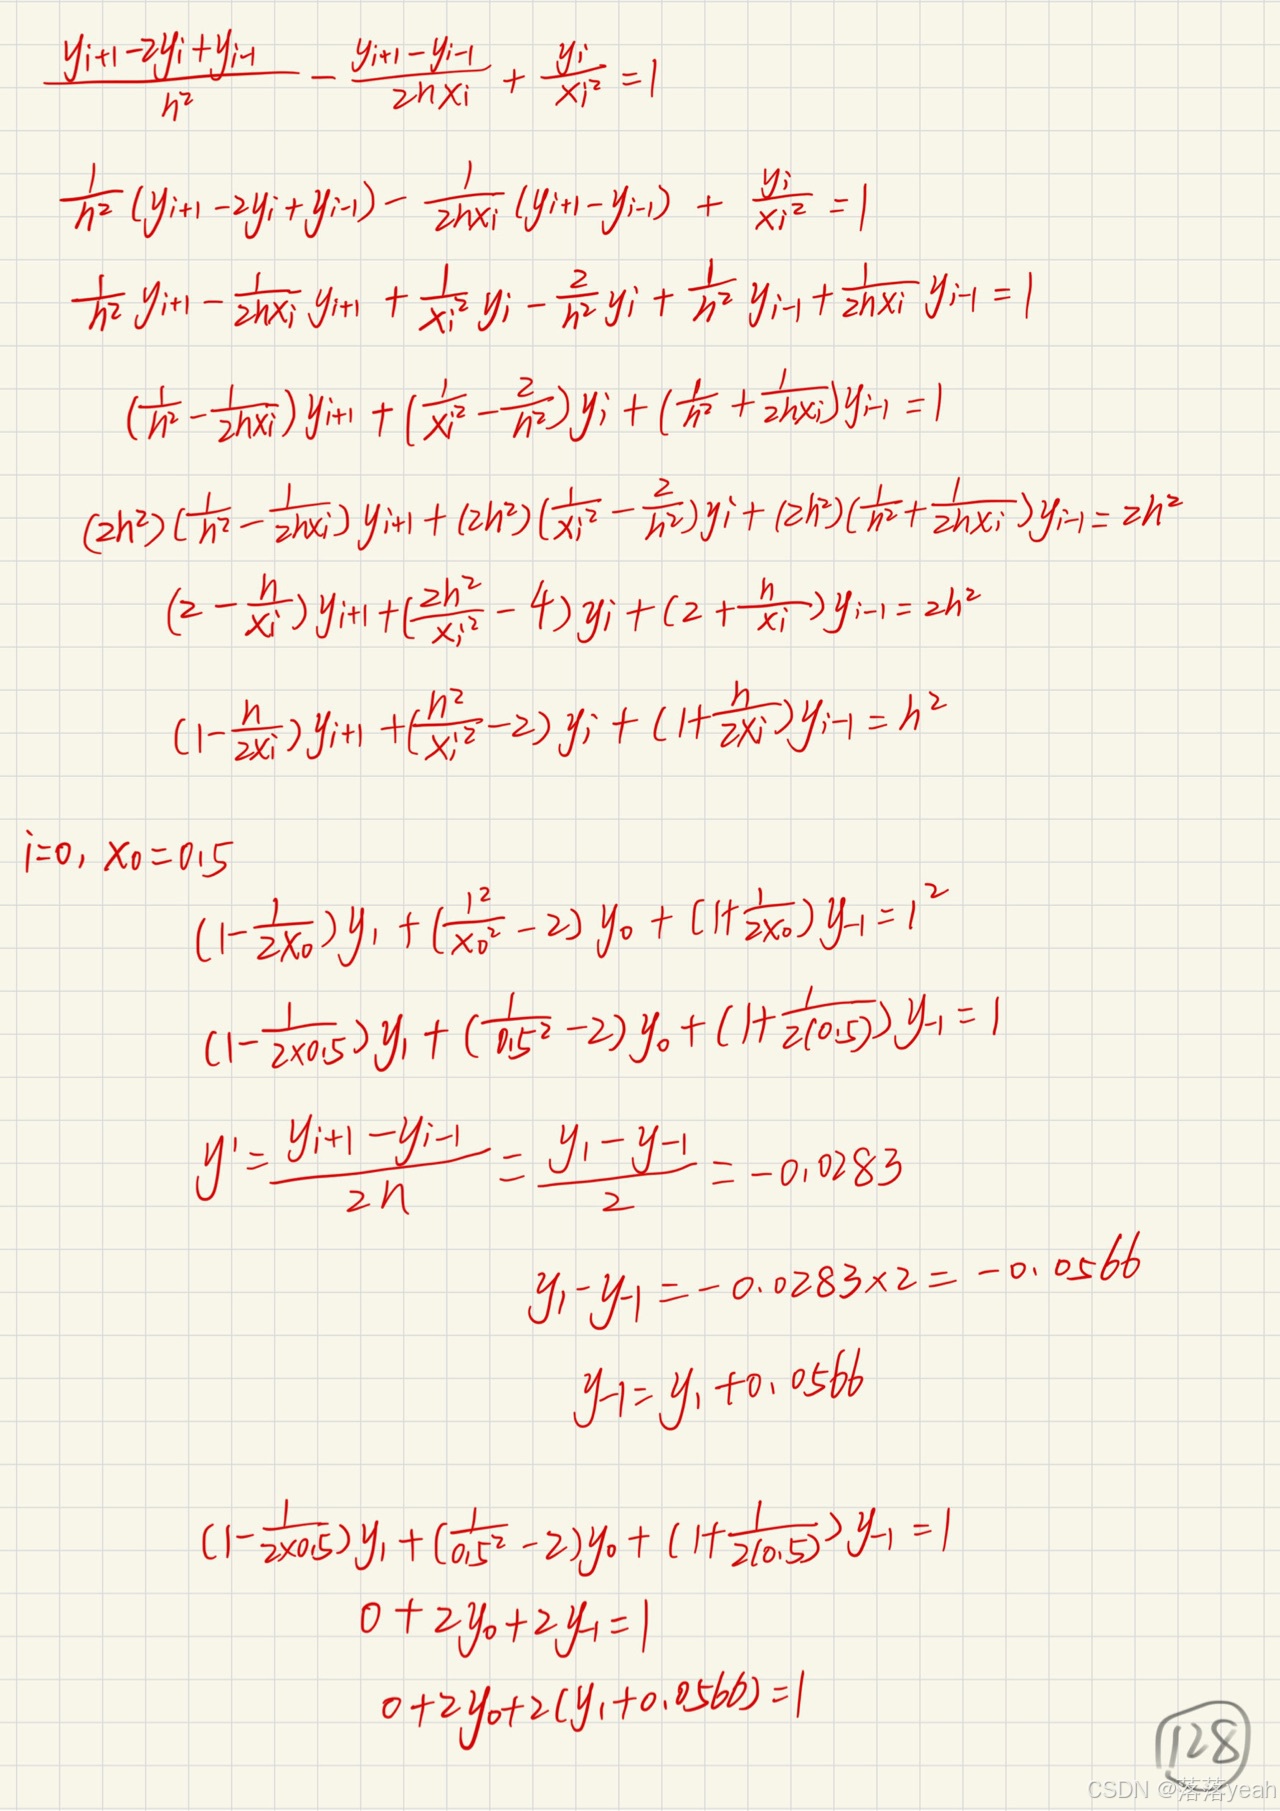 (y_{i+1} - 2y_i + y_{i-1})/h² - (y_{i+1} - y_{i-1})/(2hx_i) + y_i/x_i² = 1
1/h² (y_{i+1} - 2y_i + y_{i-1}) - 1/(2hx_i) (y_{i+1} - y_{i-1}) + y_i/x_i² = 1
1/h² y_{i+1} - 1/(2hx_i) y_{i+1} + 1/x_i² y_i - 2/h² y_i + 1/h² y_{i-1} + 1/(2hx_i) y_{i-1} = 1
(1/h² - 1/(2hx_i)) y_{i+1} + (1/x_i² - 2/h²) y_i + (1/h² + 1/(2hx_i)) y_{i-1} = 1
(2h²)(1/h² - 1/(2hx_i)) y_{i+1} + (2h²)(1/x_i² - 2/h²) y_i + (2h²)(1/h² + 1/(2hx_i)) y_{i-1} = 2h²
(2 - h/x_i) y_{i+1} + (2h²/x_i² - 4) y_i + (2 + h/x_i) y_{i-1} = 2h²
(1 - h/(2x_i)) y_{i+1} + (h²/x_i² - 2) y_i + (1 + h/(2x_i)) y_{i-1} = h²
i=0, x_0 = 0.5
(1 - 1/(2x_0)) y_1 + (1²/x_0² - 2) y_0 + (1 + 1/(2x_0)) y_{-1} = 1²
(1 - 1/(2×0.5)) y_1 + (1/0.5² - 2) y_0 + (1 + 1/(2(0.5))) y_{-1} = 1
y' = (y_{i+1} - y_{i-1})/(2h) = (y_1 - y_{-1})/2 = -0.0283
y_1 - y_{-1} = -0.0283×2 = -0.0566
y_{-1} = y_1 + 0.0566
(1 - 1/(2×0.5)) y_1 + (1/0.5² - 2) y_0 + (1 + 1/(2(0.5))) y_{-1} = 1
0 + 2y_0 + 2y_{-1} = 1
0 + 2y_0 + 2(y_1 + 0.0566) = 1
128
CSDN @落落yeah